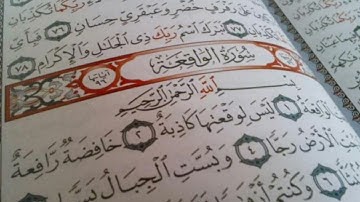 رَفْرَفٍ خُضْرٍ وَعَبْقَرِيٍّ حِسَانٍ ٧٦ فَبِأَيِّ
تَبَٰرَكَ ٱسْمُ رَبِّكَ ذِى ٱلْجَلَٰلِ وَٱلْإِكْرَامِ ٧٨
سُورَةُ الْوَاقِعَةِ
بِسْمِ ٱللَّهِ ٱلرَّحْمَٰنِ ٱلرَّحِيمِ
ٱلْوَاقِعَةُ ١ لَيْسَ لِوَقْعَتِهَا كَاذِبَةٌ ٢ خَافِضَةٌ رَّافِعَةٌ
ٱلْأَرْضُ رَجًّا ٤ وَبُسَّتِ ٱلْجِبَالُ بَسًّا
وَكُنتُمْ